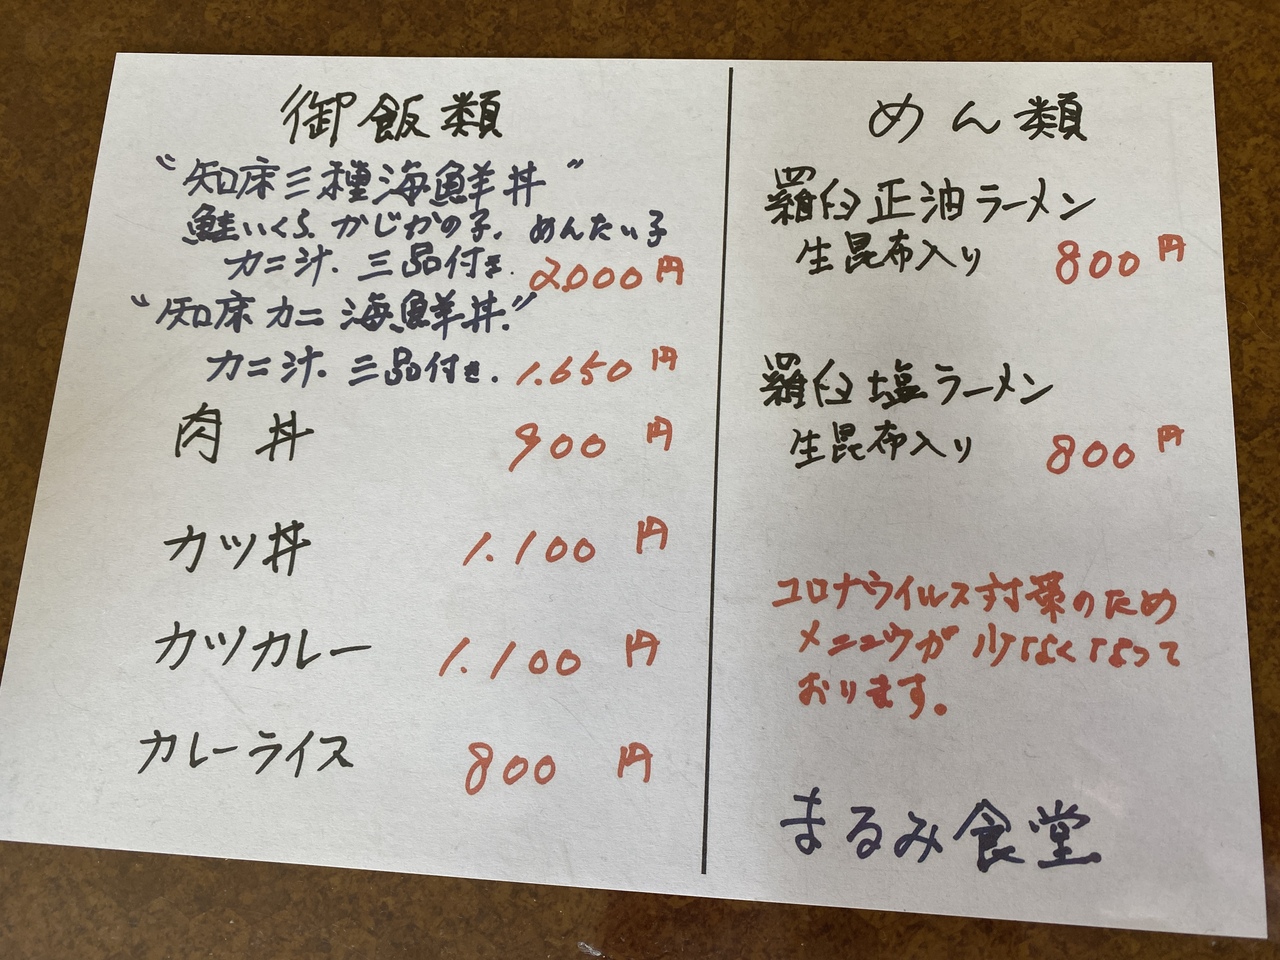 御飯類
"知床三種海鮮丼"
鮭いくら、かじかの子、めんたい子
カニ汁、三品付き、2.000円
"知床カニ海鮮丼"
カニ汁、三品付き、1.650円
肉丼 900円
カツ丼 1.100円
カツカレー 1.100円
カレーライス 800円
めん類
羅臼正油ラーメン
生昆布入り 800円
羅臼塩ラーメン
生昆布入り 800円
コロナウイルス対策のため
メニュウが少なくなって
おります。
まるみ食堂